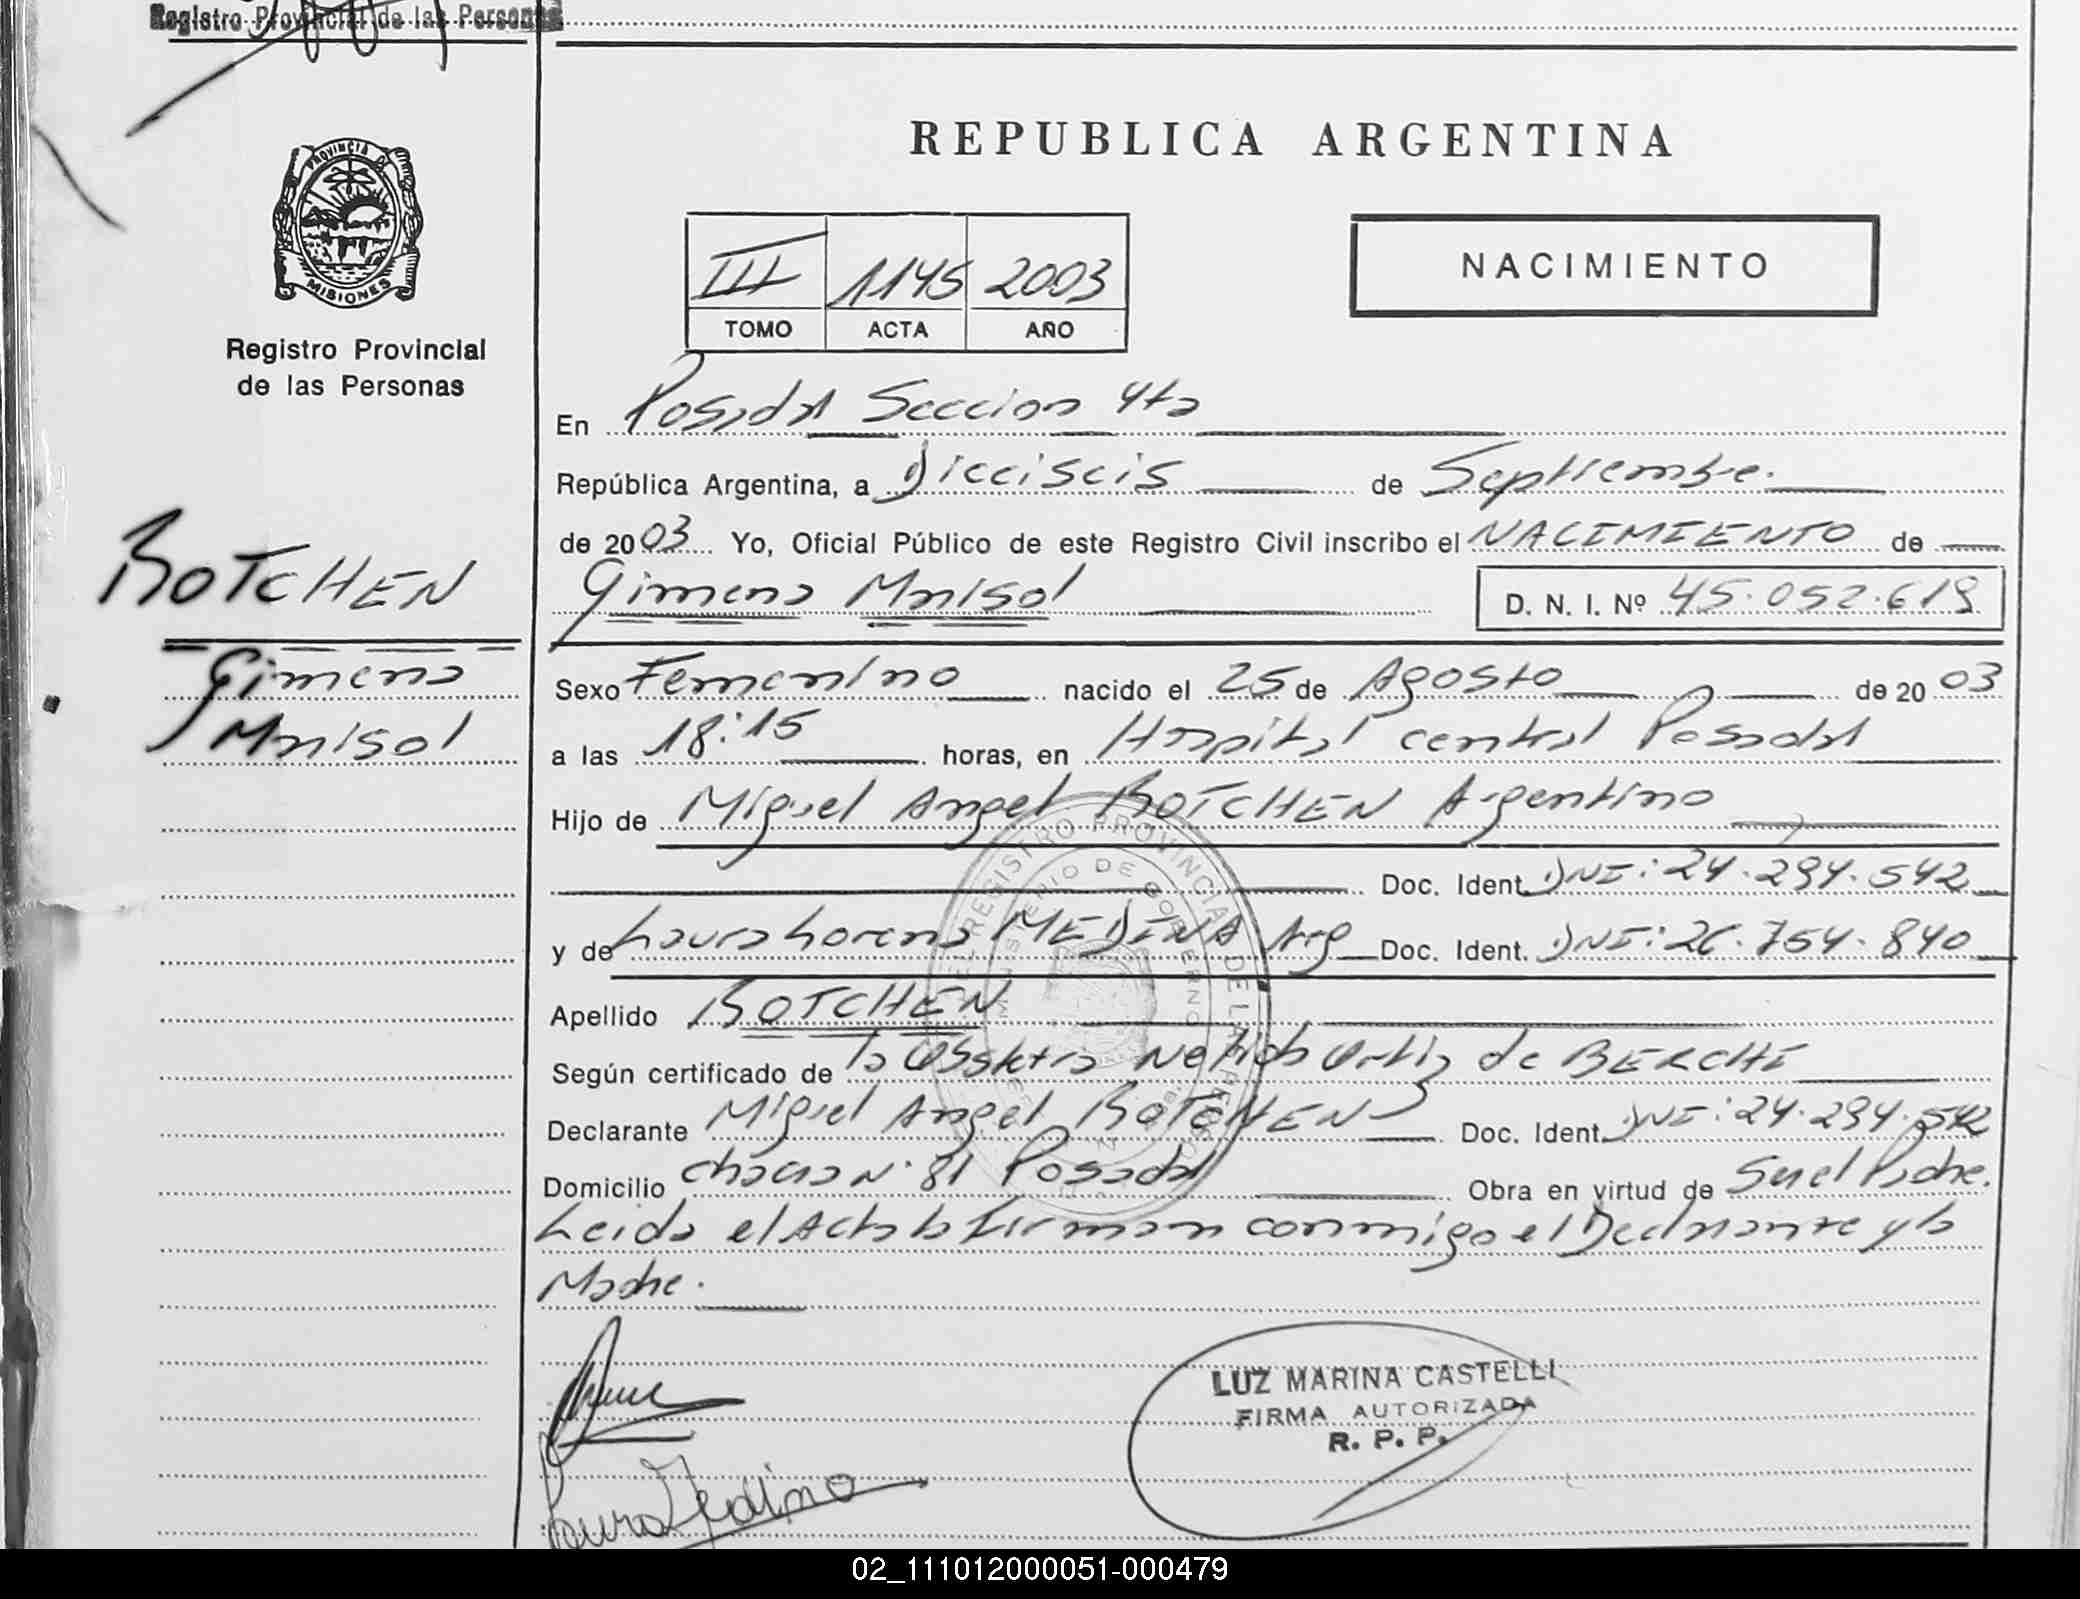 Registro Provincial de las Personas
REPUBLICA ARGENTINA
PROVINCIA DE
MISIONES
Registro Provincial
de las Personas
III 1145 2003
TOMO ACTA AÑO
NACIMIENTO
En Posadas Seccion 4ta
República Argentina, a Dieciseis de Septiembre.
de 2003 Yo, Oficial Público de este Registro Civil inscribo el NACIMIENTO de
Gimena Marisol D. N. I. Nº 45.052.619
BOTCHEN
Gimena
Marisol
Sexo Femenino nacido el 25 de Agosto de 2003
a las 18:15 horas, en Hospital central Posadas
Hijo de Miguel Angel BOTCHEN Argentino
Doc. Ident. DNI: 24.294.542
y de Laura Lorena MEDINA Arg Doc. Ident. DNI: 26.754.840
Apellido BOTCHEN
Según certificado de la Obstetra Nelida Ortiz de BERCHI
Declarante Miguel Angel BOTCHEN Doc. Ident. DNI: 24.294.542
Domicilio chacra Nº 81 Posadas Obra en virtud de Ser el Padre.
Leida el Acta la firman conmigo el Declarante y la
Madre.
LUZ MARINA CASTELLI
FIRMA AUTORIZADA
R. P. P.
Laura Medina
02_111012000051-000479